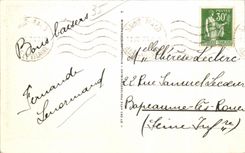 Bons baisers
Fernande
Lenormand
POSTES
30c
Mlle Thérèse Leclerc
22 Rue Samuel Lecoeur
Bapeaume-lès-Rouen
(Seine Infre)